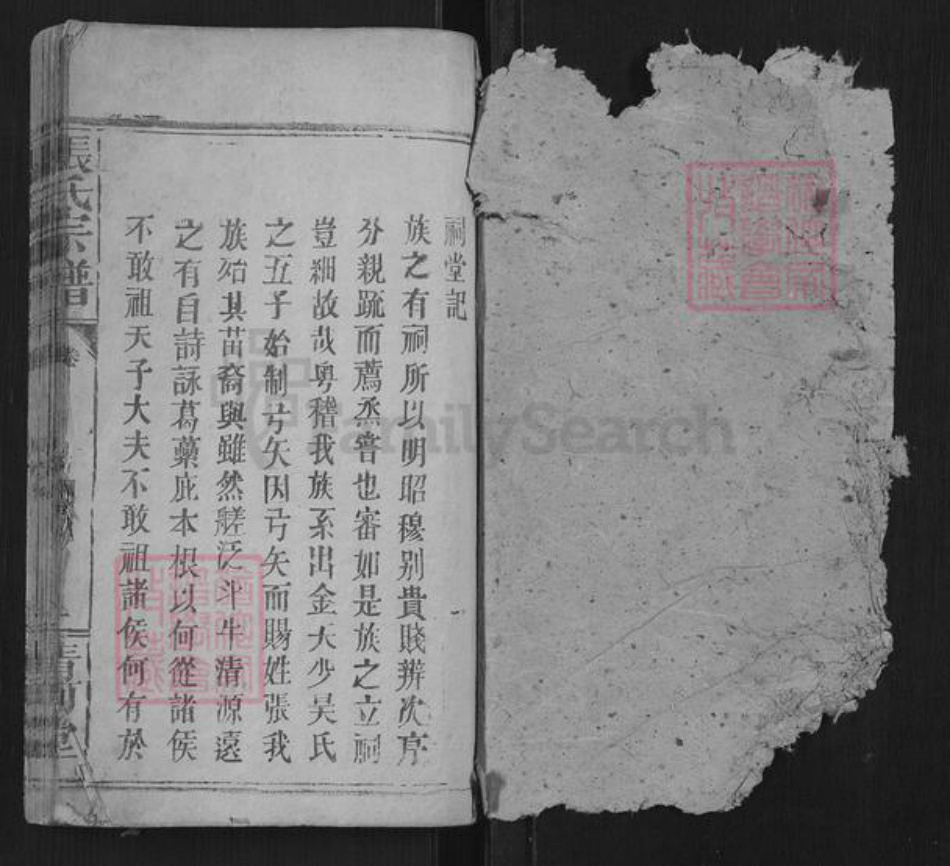 祠堂記
族之有祠所以明昭穆别貴賤辨次序
分親䟽而薦烝嘗也審如是族之立祠
豈細故哉粤稽我族系出金天少昊氏
之五子始制弓矢因弓矢而賜姓張我
族殆其苗裔與雖然槎泛斗牛清源遠
之有自詩詠葛藟庇本根以何從諸侯
不敢祖天子大夫不敢祖諸侯何有於
張氏宗譜
卷
清河堂
FamilySearch